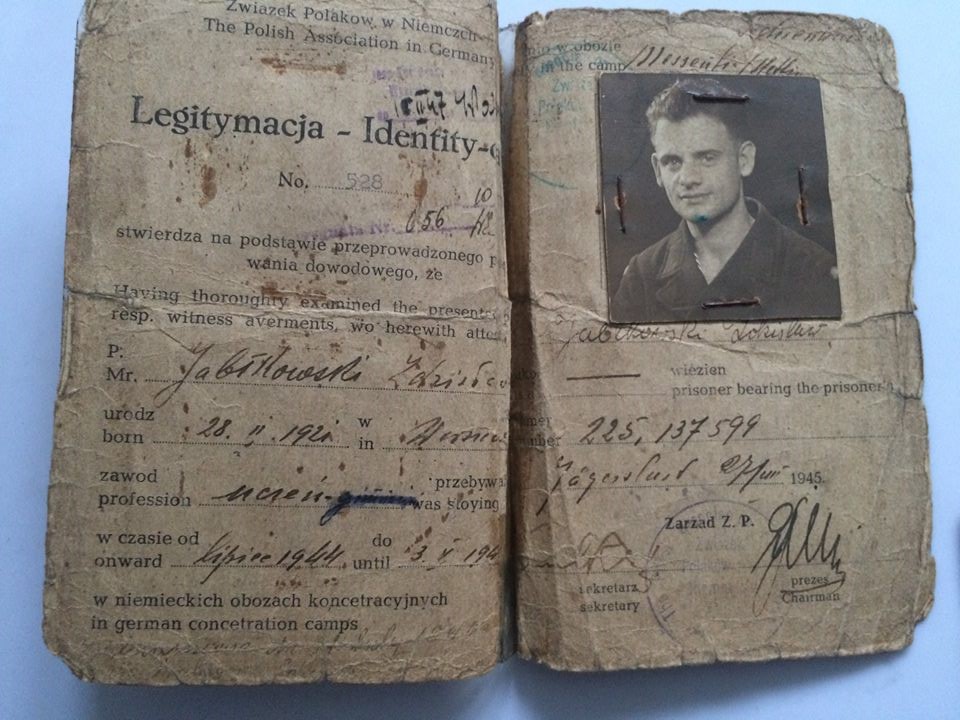 Związek Polaków w Niemczech
The Polish Association in Germany
Legitymacja - Identity-c
No. 528
10
656
stwierdza na podstawie przeprowadzonego p
wania dowodowego, że
Having thoroughly examined the presente
resp. witness averments, wo herewith atte
P:
Mr. Jabłkowski Zdzisła
urodz
born 28. II. 1921 w
in
zawod
profession uczeń przebywa
was stoying
w czasie od
onward lipiec 1944 do
until 3 V 194
w niemieckich obozach koncetracyjnych
in german concetration camps
w obozie
in the camp
Jabłkowski Zdzisław
więzien
prisoner bearing the prisoner
mer
umber 225, 137599
Jägerslust 1945.
Zarząd Z. P.
sekretarz
sekretary
prezes
Chairman